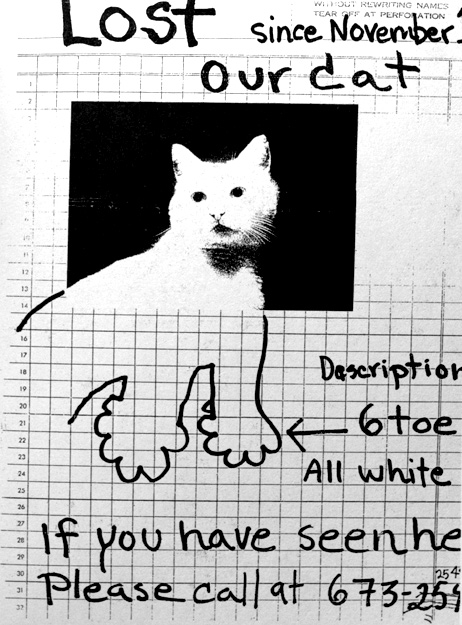 WITHOUT REWRITING NAMES
TEAR OFF AT PERFORATION
Lost
since November
our cat
7
11
12
13
14
16
17
18
19
20
21
22
23
24
25
27
28
29
30
31
32
Description
6 toe
All white
If you have seen he
Please call at 673-254
254